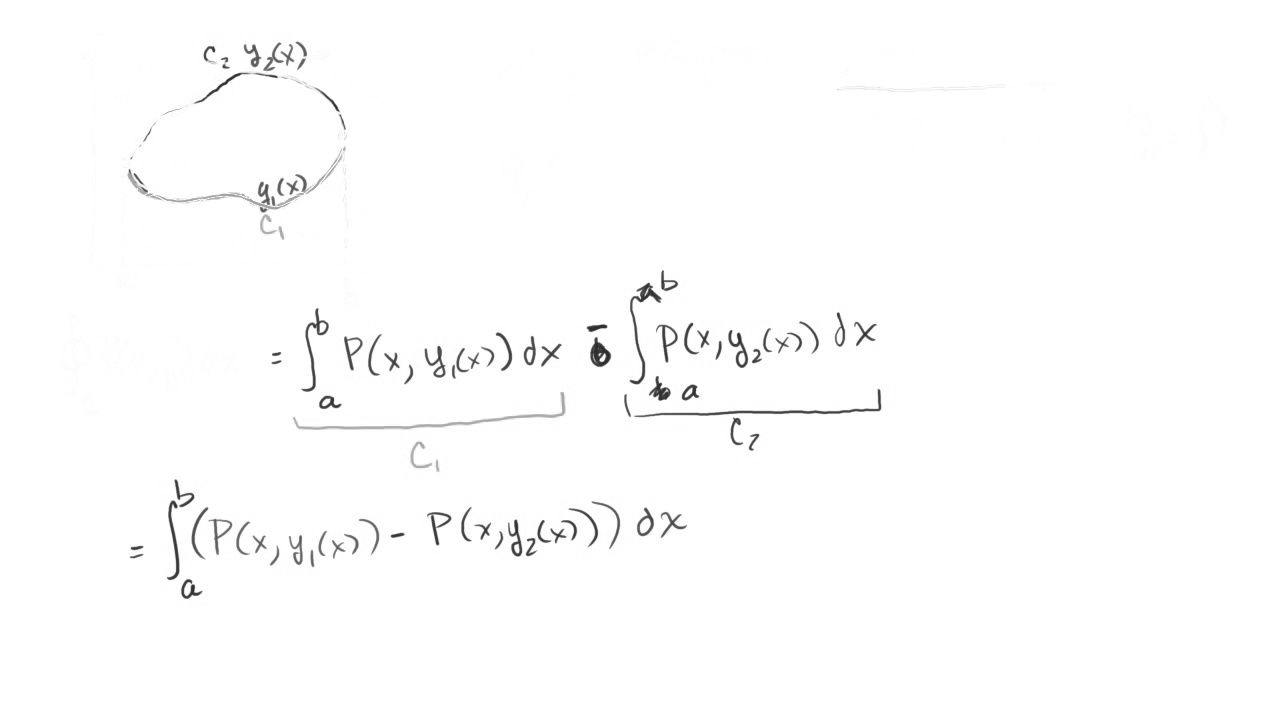 C₂ y₂(x)
y₁(x)
C₁
= ∫ₐᵇ P(x, y₁(x)) dx - ∫ₐᵇ P(x, y₂(x)) dx
C₁ C₂
= ∫ₐᵇ (P(x, y₁(x)) - P(x, y₂(x))) dx